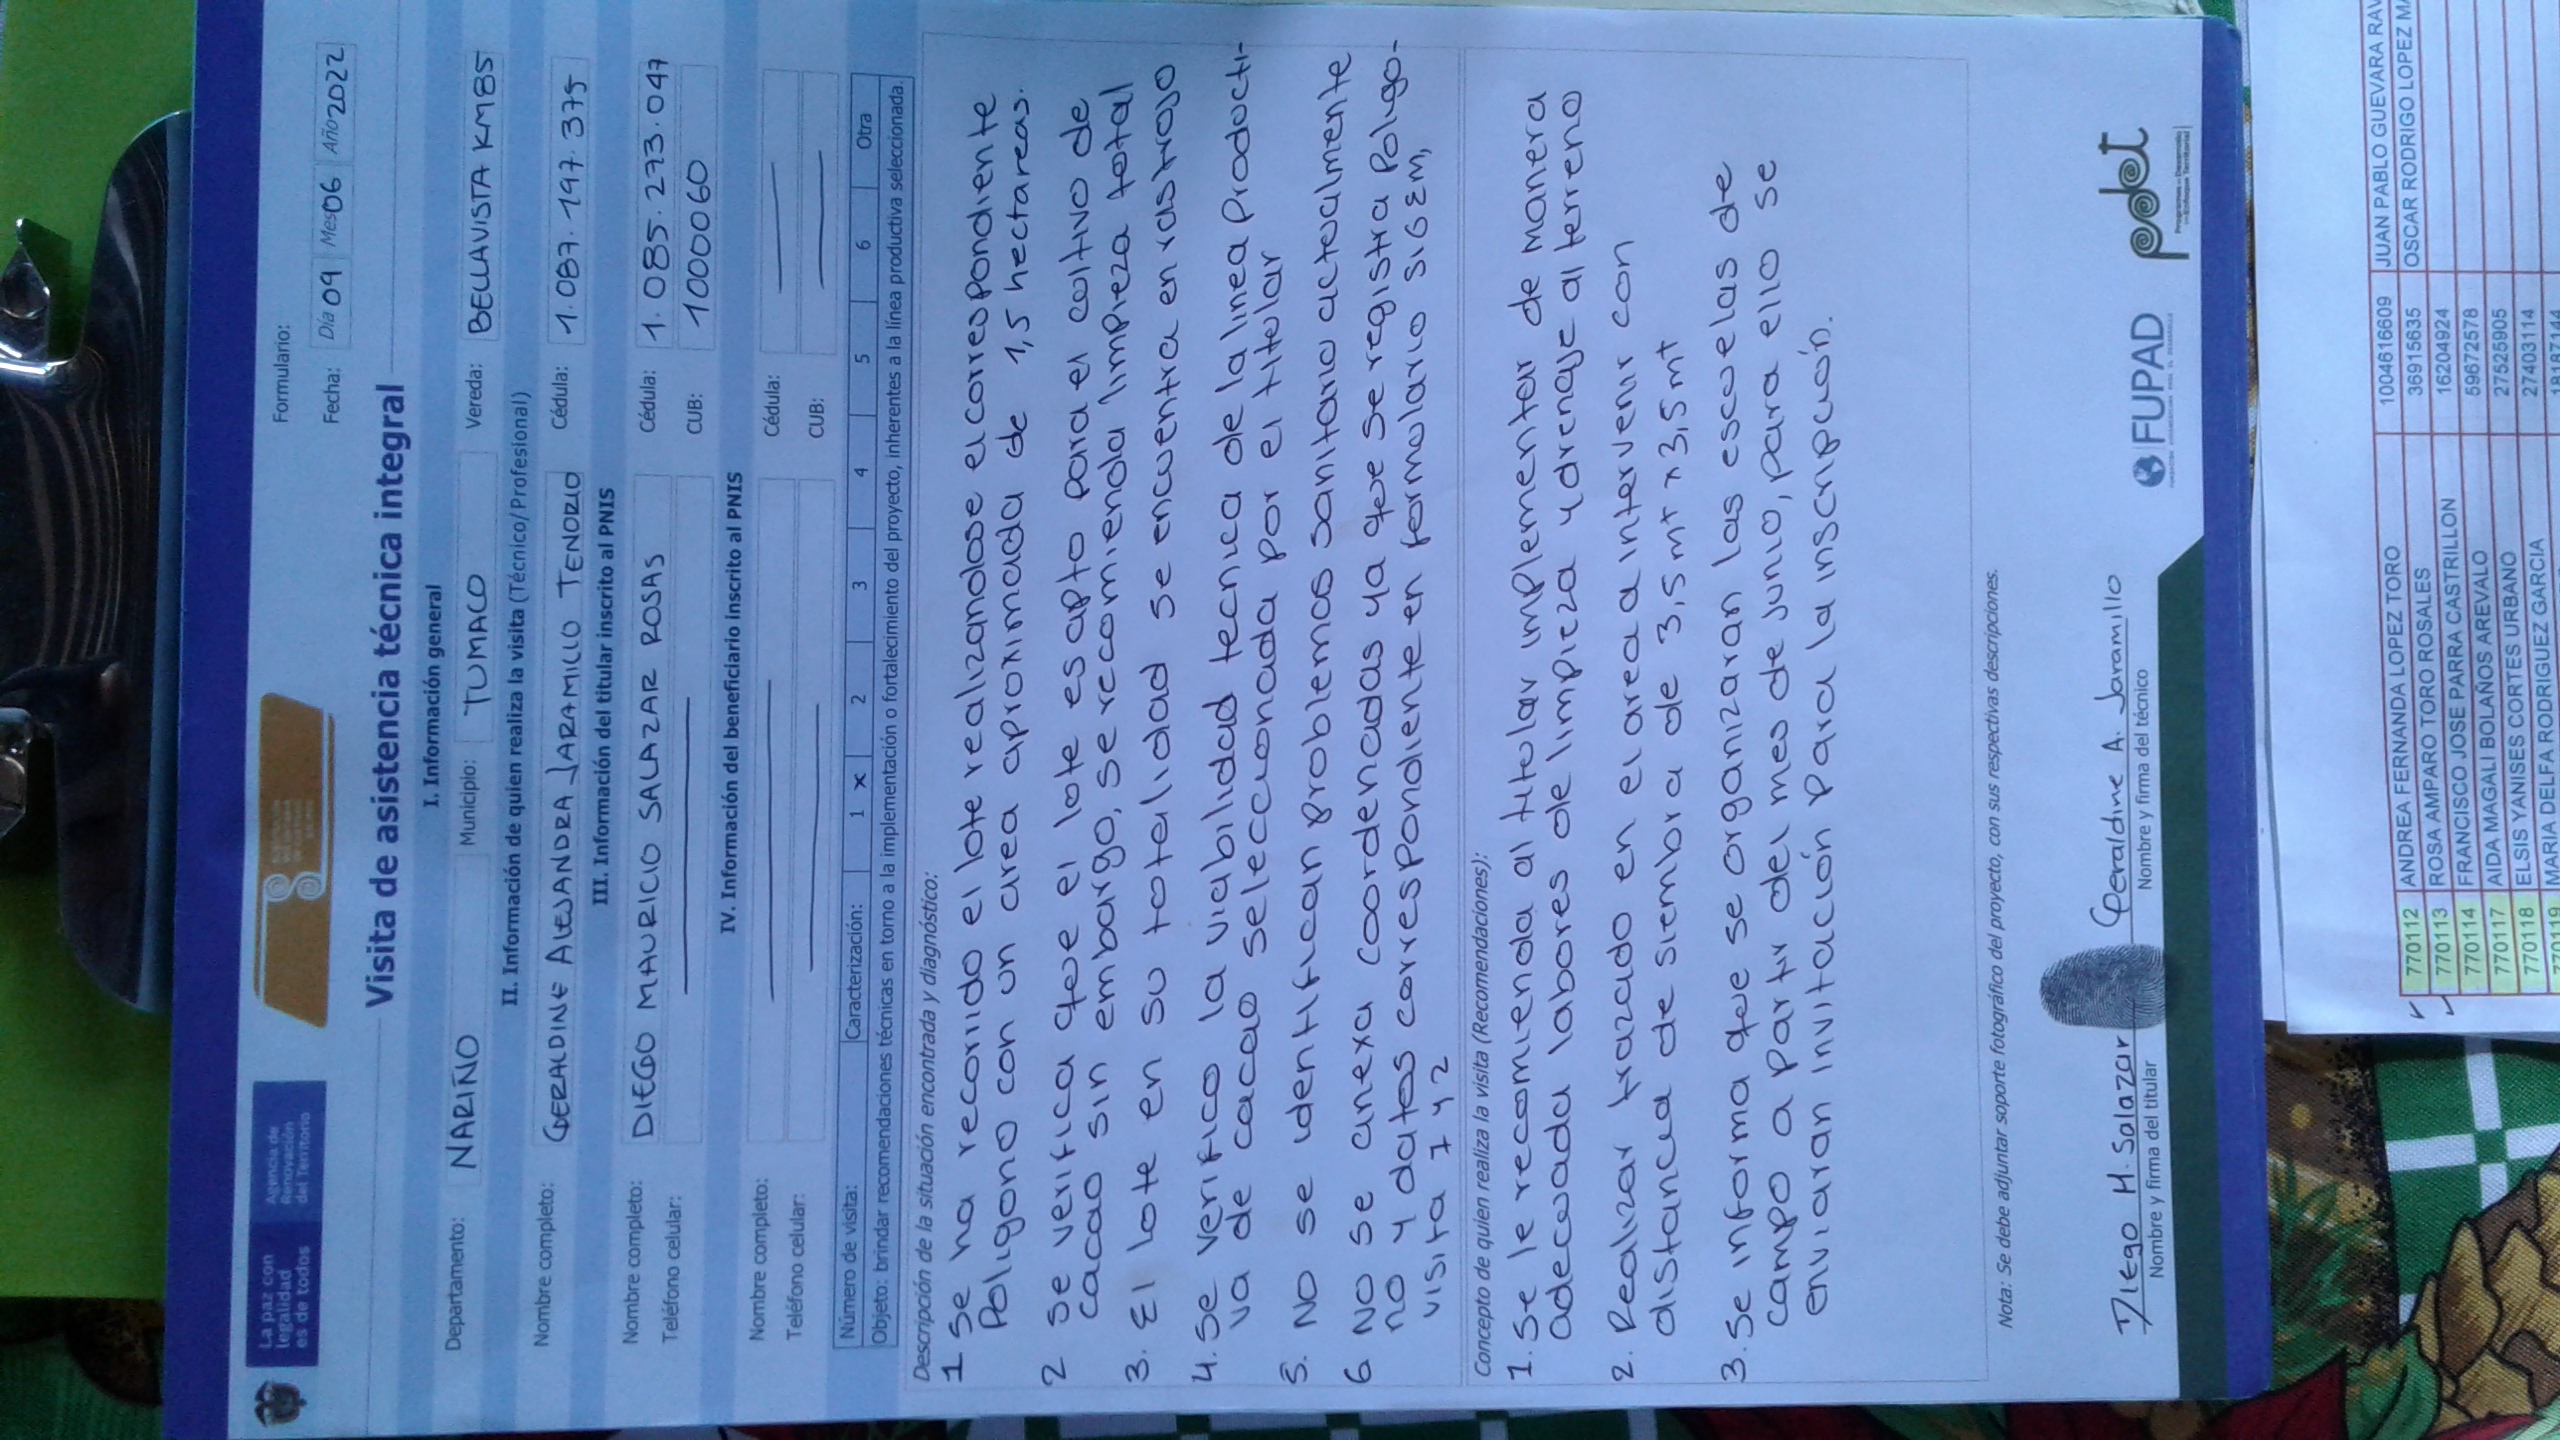 La paz con
legalidad
es de todos
Agencia de
Renovación
del Territorio
Formulario:
Fecha: Día 09 Mes 06 Año 2022
Visita de asistencia técnica integral
I. Información general
Departamento: NARIÑO Municipio: TUMACO Vereda: BELLAVISTA KM85
II. Información de quien realiza la visita (Técnico/Profesional)
Nombre completo: GERALDINE ALEJANDRA JARAMILLO TENORIO Cédula: 1.087.197.375
III. Información del titular inscrito al PNIS
Nombre completo: DIEGO MAURICIO SALAZAR ROSAS Cédula: 1.085.273.047
Teléfono celular: CUB: 1000060
IV. Información del beneficiario inscrito al PNIS
Nombre completo: Cédula:
Teléfono celular: CUB:
Número de visita: Caracterización: 1 x 2 3 4 5 6 Otra
Objeto: brindar recomendaciones técnicas en torno a la implementación o fortalecimiento del proyecto, inherentes a la línea productiva seleccionada.
Descripción de la situación encontrada y diagnóstico:
1 Se ha recorrido el lote realizandose el correspondiente
Poligono con un area aproximada de 1,5 hectareas.
2 Se verifica que el lote es apto para el cultivo de
cacao sin embargo, se recomienda limpieza total
3. El lote en su totalidad se encuentra en rastrojo
4. Se verifico la viabilidad tecnica de la linea Producti-
va de cacao seleccionada por el titular
5. No se identifican problemas sanitario actualmente
6 No se anexa coordenadas ya que se registra Poligo-
no y datos correspondiente en formulario SIGEM,
visita 1 y 2
Concepto de quien realiza la visita (Recomendaciones):
1. Se le recomienda al titular implementar de manera
adecuada labores de limpieza y drenaje al terreno
2. Realizar trazado en el area a intervenir con
distancia de siembra de 3,5 mt x 3,5 mt
3. Se informa que se organizaran las escuelas de
campo a partir del mes de Junio, para ello se
enviaran invitación para la inscripción.
Nota: Se debe adjuntar soporte fotográfico del proyecto, con sus respectivas descripciones.
Diego M. Salazar
Nombre y firma del titular
Geraldine A. Jaramillo
Nombre y firma del técnico
FUPAD
pdet
Programas de Desarrollo
con Enfoque Territorial
1004616609 JUAN PABLO GUEVARA
770112 ANDREA FERNANDA LOPEZ TORO 36915635 OSCAR RODRIGO LOPEZ
770113 ROSA AMPARO TORO ROSALES 16204924
770114 FRANCISCO JOSE PARRA CASTRILLON 59672578
770117 AIDA MAGALI BOLAÑOS AREVALO 27525905
770118 ELSIS YANISES CORTES URBANO 27403114
770119 MARIA DELFA RODRIGUEZ GARCIA 18187144